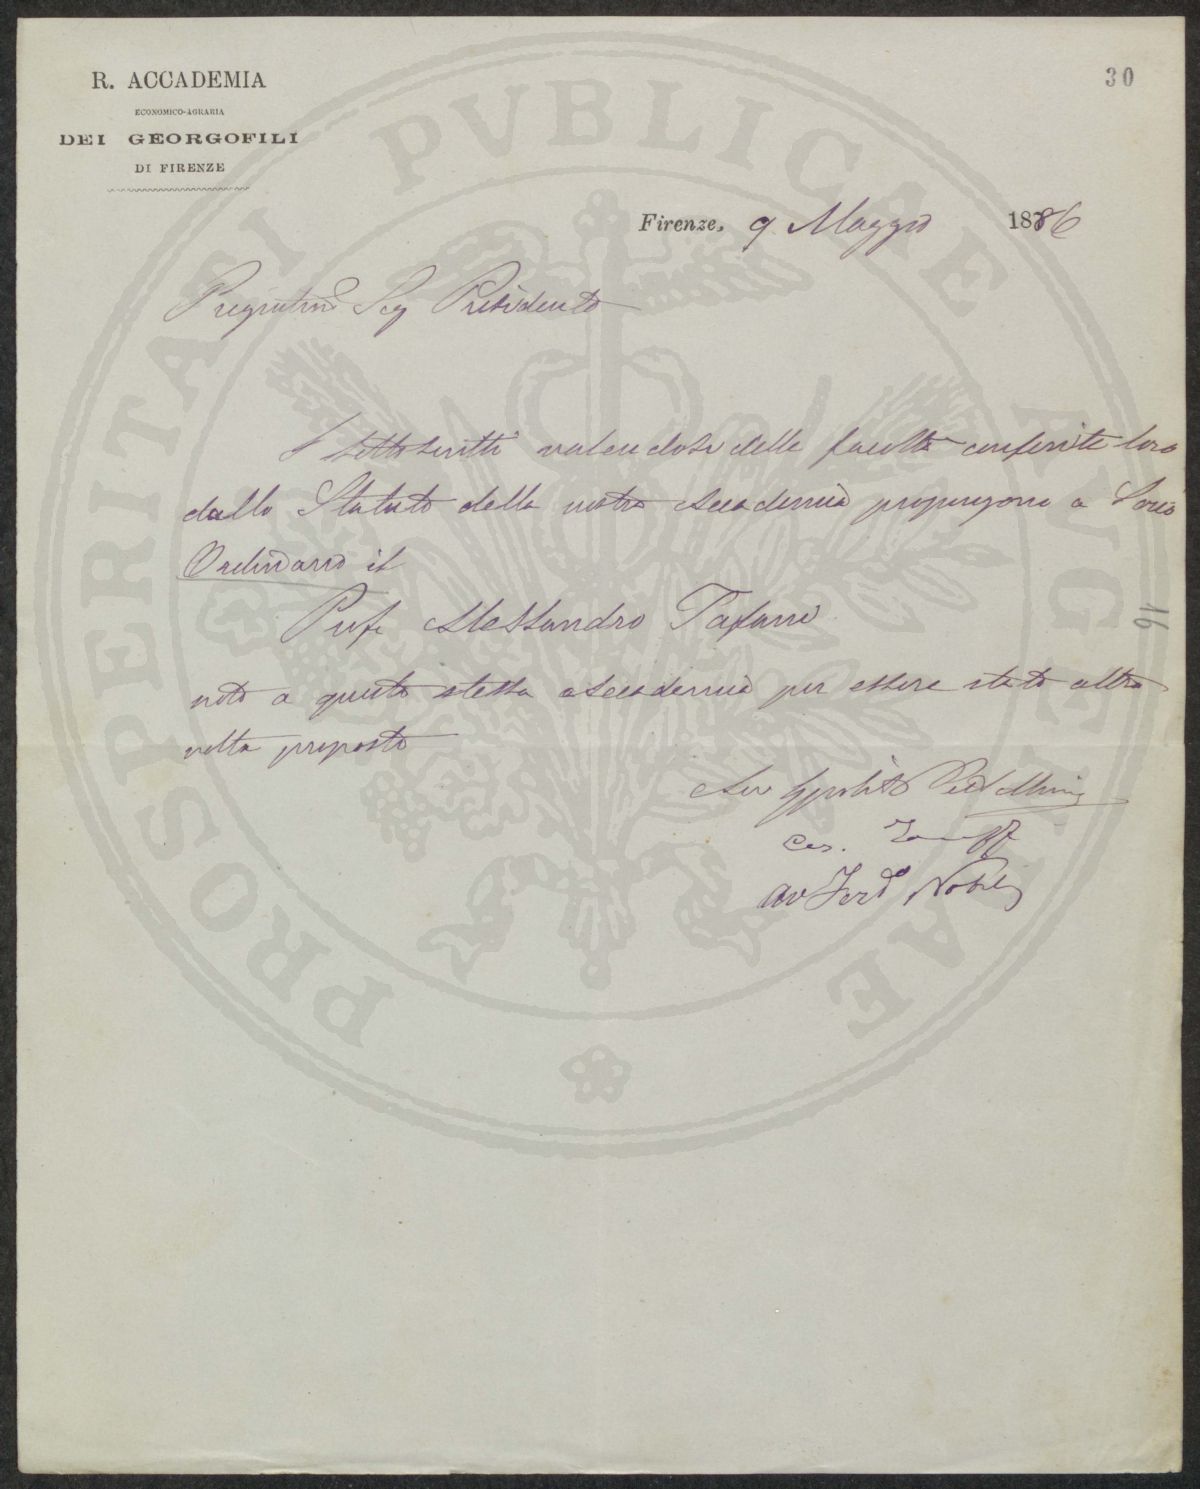 R. ACCADEMIA
ECONOMICO-AGRARIA
DEI GEORGOFILI
DI FIRENZE
30
Firenze, 9 Maggio 1886
Sig Presidente
I sottoscritti valendosi delle facoltà conferite loro
dallo Statuto della nostra Accademia propongono a Socio
Ordinario il
Prof. Alessandro Tafani
noto a questa stessa Accademia per essere stato altra
volta proposto
Ippolito
Ces.
Av Ferdo Nobili
16
PROSPERITATI PVBLICAE AVGENDAE